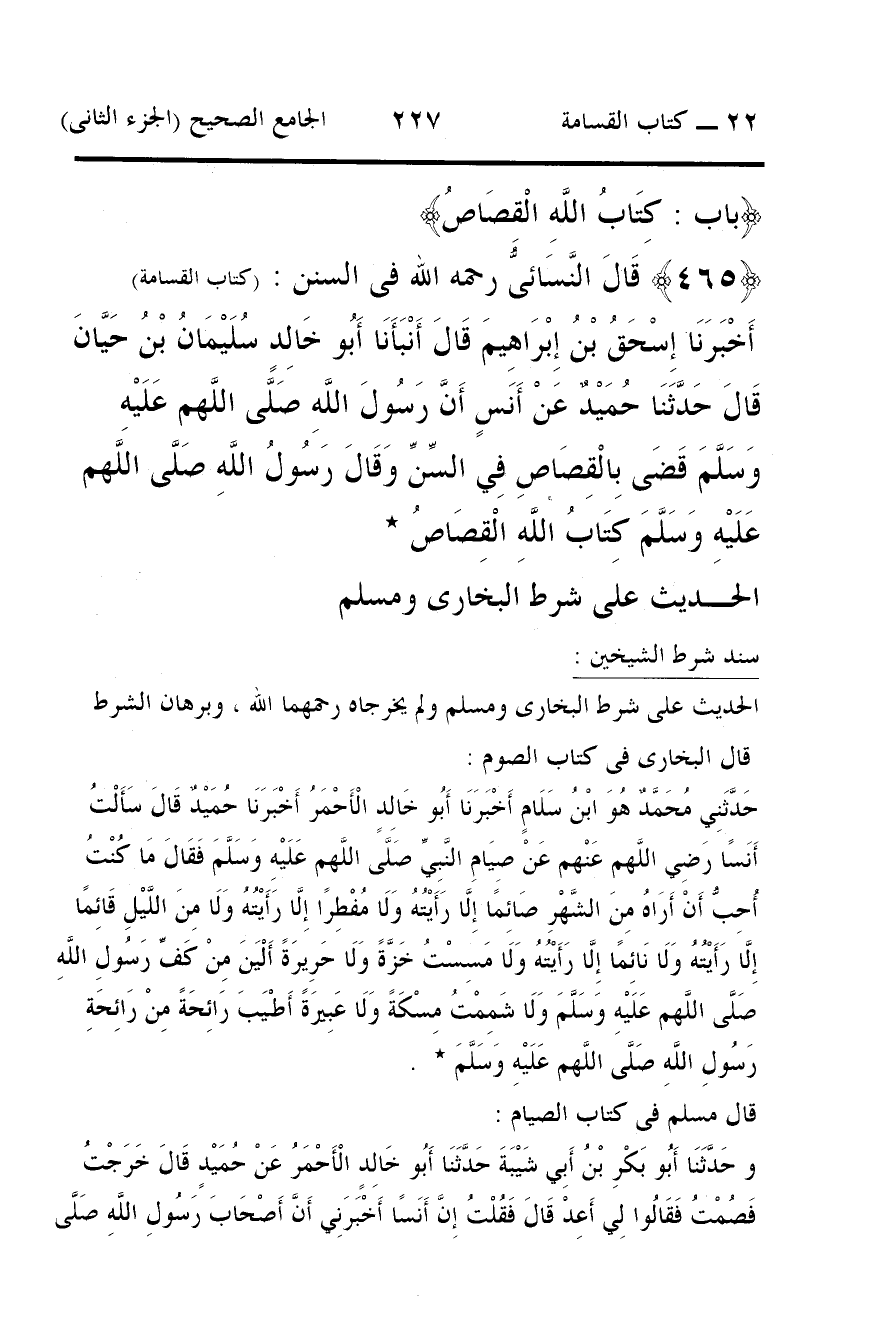 ٢٢ ــ كتاب القسامة ٢٢٧ الجامع الصحيح (الجزء الثانى)
﴿باب : كِتَابُ اللَّهِ الْقِصَاصُ﴾
﴿٤٦٥﴾ قَالَ النَّسَائِىُّ رحمه الله فى السنن : (كتاب القسامة)
أَخْبَرَنَا إِسْحَقُ بْنُ إِبْرَاهِيمَ قَالَ أَنْبَأَنَا أَبُو خَالِدٍ سُلَيْمَانُ بْنُ حَيَّانَ
قَالَ حَدَّثَنَا حُمَيْدٌ عَنْ أَنَسٍ أَنَّ رَسُولَ اللَّهِ صَلَّى اللَّهم عَلَيْهِ
وَسَلَّمَ قَضَى بِالْقِصَاصِ فِي السِّنِّ وَقَالَ رَسُولُ اللَّهِ صَلَّى اللَّهم
عَلَيْهِ وَسَلَّمَ كِتَابُ اللَّهِ الْقِصَاصُ *
الحـــديث على شرط البخارى ومسلم
سند شرط الشيخين :
الحديث على شرط البخارى ومسلم ولم يخرجاه رحمهما الله ، وبرهان الشرط
قال البخارى فى كتاب الصوم :
حَدَّثَنِي مُحَمَّدٌ هُوَ ابْنُ سَلَامٍ أَخْبَرَنَا أَبُو خَالِدٍ الْأَحْمَرُ أَخْبَرَنَا حُمَيْدٌ قَالَ سَأَلْتُ
أَنَسًا رَضِي اللَّهم عَنْهم عَنْ صِيَامِ النَّبِيِّ صَلَّى اللَّهم عَلَيْهِ وَسَلَّمَ فَقَالَ مَا كُنْتُ
أُحِبُّ أَنْ أَرَاهُ مِنَ الشَّهْرِ صَائِمًا إِلَّا رَأَيْتُهُ وَلَا مُفْطِرًا إِلَّا رَأَيْتُهُ وَلَا مِنَ اللَّيْلِ قَائِمًا
إِلَّا رَأَيْتُهُ وَلَا نَائِمًا إِلَّا رَأَيْتُهُ وَلَا مَسِسْتُ خَزَّةً وَلَا حَرِيرَةً أَلْيَنَ مِنْ كَفِّ رَسُولِ اللَّهِ
صَلَّى اللَّهم عَلَيْهِ وَسَلَّمَ وَلَا شَمِمْتُ مِسْكَةً وَلَا عَبِيرَةً أَطْيَبَ رَائِحَةً مِنْ رَائِحَةِ
رَسُولِ اللَّهِ صَلَّى اللَّهم عَلَيْهِ وَسَلَّمَ * .
قال مسلم فى كتاب الصيام :
و حَدَّثَنَا أَبُو بَكْرِ بْنُ أَبِي شَيْبَةَ حَدَّثَنَا أَبُو خَالِدٍ الْأَحْمَرُ عَنْ حُمَيْدٍ قَالَ خَرَجْتُ
فَصُمْتُ فَقَالُوا لِي أَعِدْ قَالَ فَقُلْتُ إِنَّ أَنَسًا أَخْبَرَنِي أَنَّ أَصْحَابَ رَسُولِ اللَّهِ صَلَّى